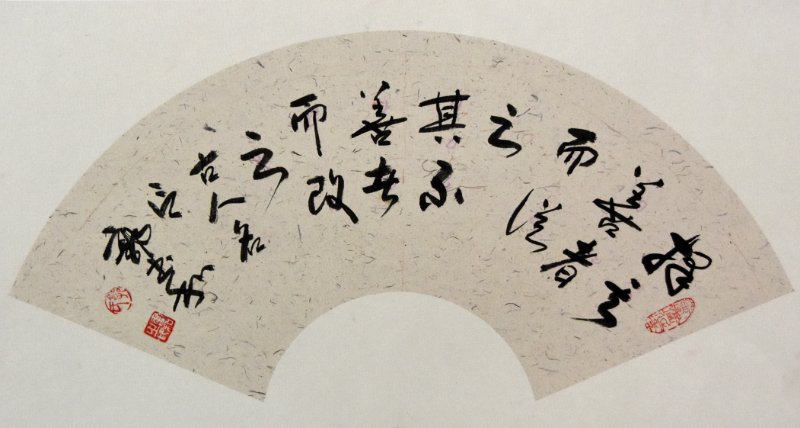 擇其
善者
而從
之
其不
善者
而改
之
古人名
句